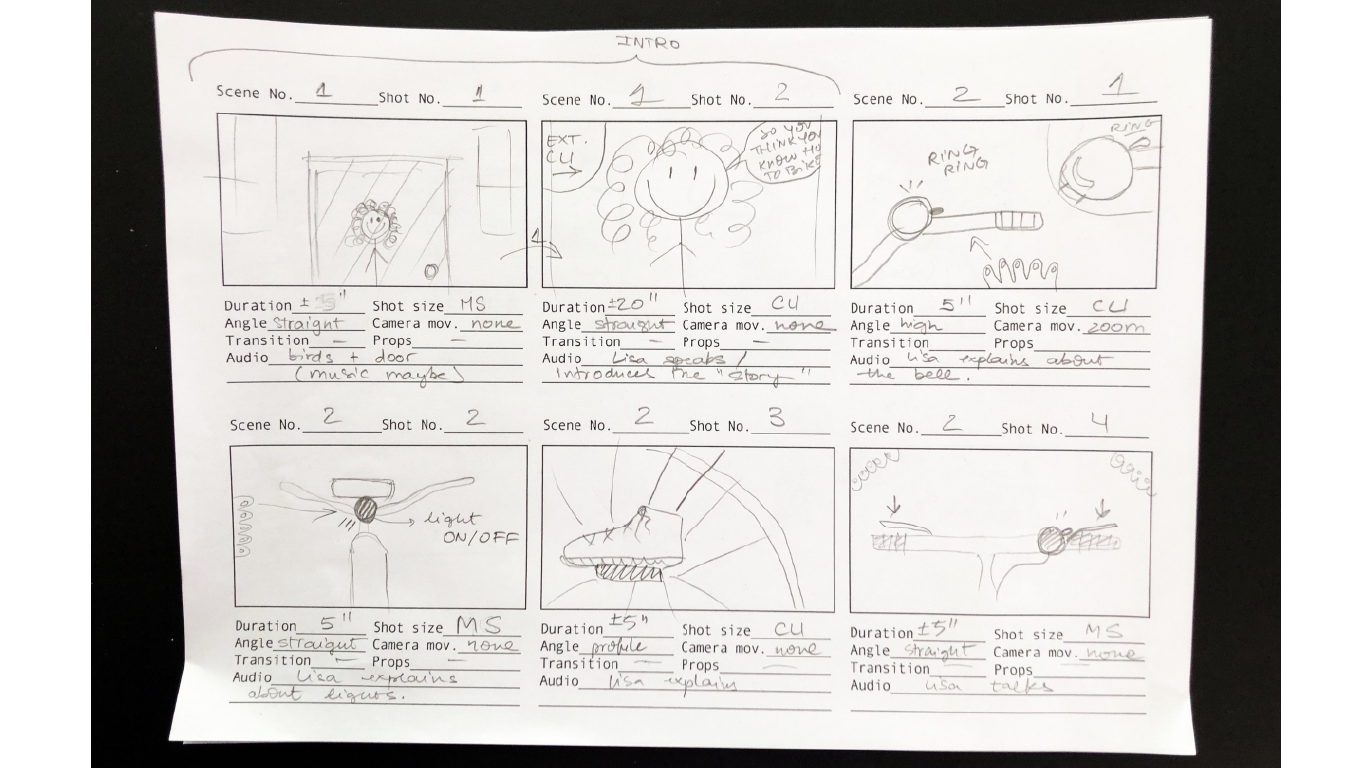 INTRO
Scene No. 1 Shot No. 1
Duration ± 5" Shot size MS
Angle straight Camera mov. none
Transition — Props —
Audio birds + door
(music maybe)
Scene No. 1 Shot No. 2
EXT.
CU
SO YOU
THINK YOU
KNOW HO
TO BIKE
1
Duration ±20" Shot size CU
Angle straight Camera mov. none
Transition — Props —
Audio Lisa speaks /
Introduces the "story"
Scene No. 2 Shot No. 1
RING
RING
RING
Duration 5" Shot size CU
Angle high Camera mov. zoom
Transition Props
Audio Lisa explains about
the bell.
Scene No. 2 Shot No. 2
light
ON/OFF
Duration 5" Shot size MS
Angle straight Camera mov. none
Transition — Props —
Audio Lisa explains
about lights.
Scene No. 2 Shot No. 3
Duration ±5" Shot size CU
Angle profile Camera mov. none
Transition — Props —
Audio Lisa explains
Scene No. 2 Shot No. 4
Duration ±5" Shot size MS
Angle straight Camera mov. none
Transition — Props —
Audio Lisa talks